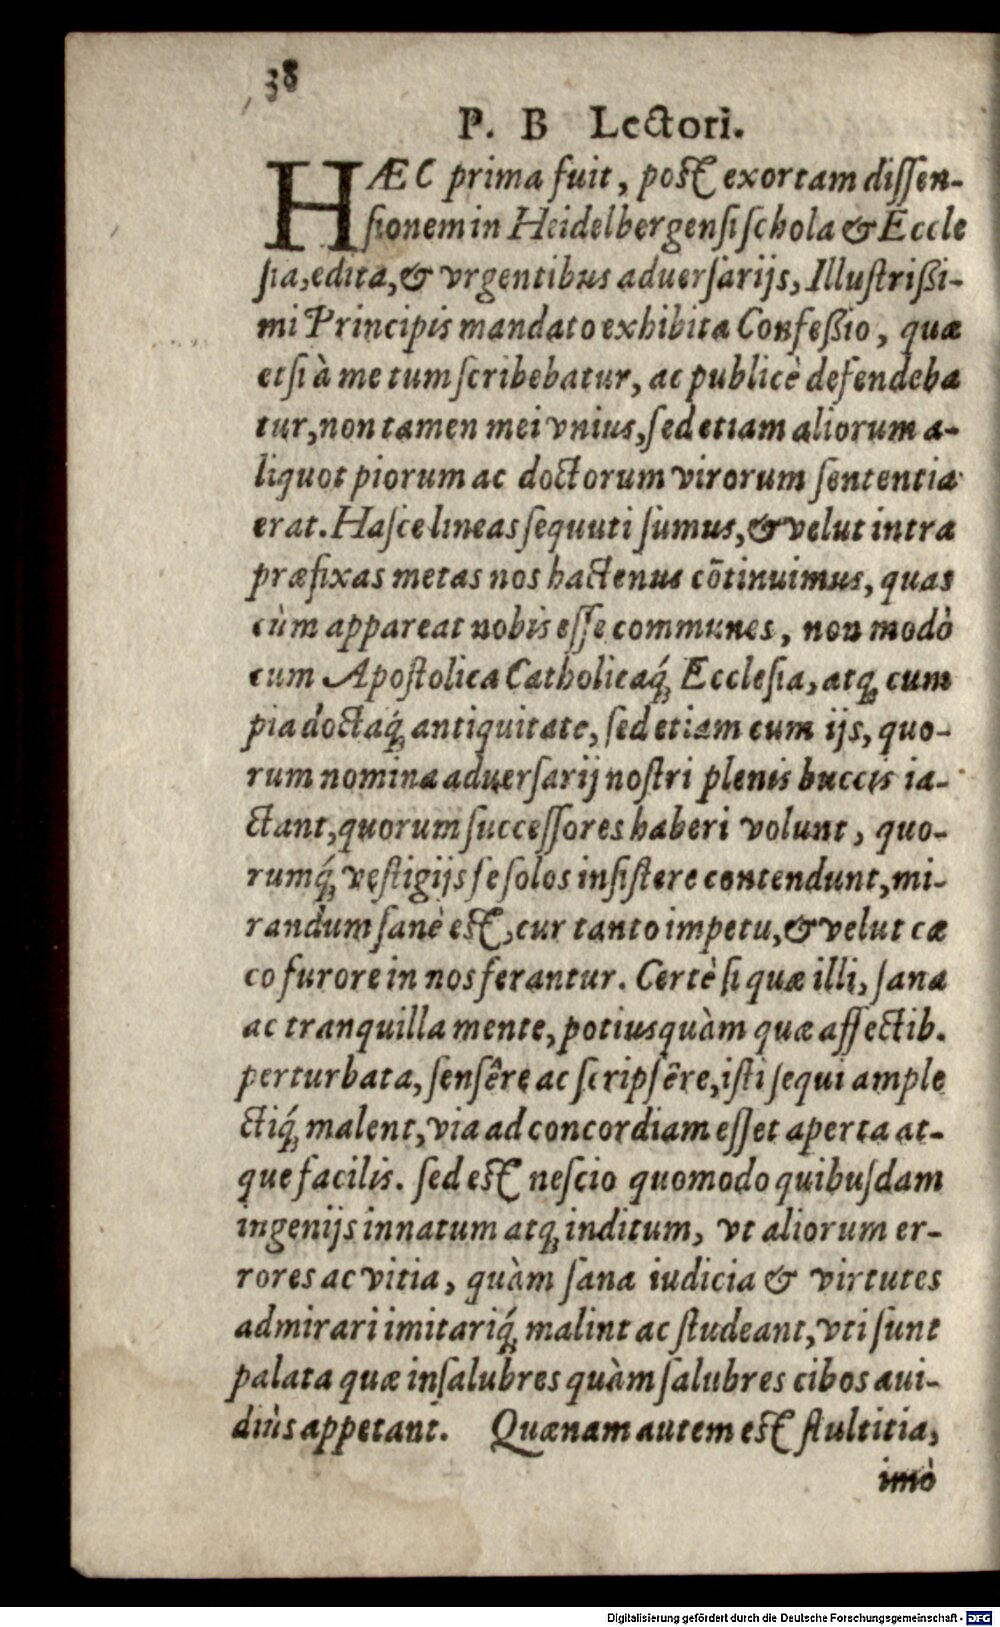 38
P. B Lectori.
HÆC prima fuit, post exortam dissen-
sionem in Heidelbergensi schola & Eccle
sia, edita, & vrgentibus aduersarijs, Illustrißi-
mi Principis mandato exhibita Confeßio, quæ
etsi à me tum scribebatur, ac publicè defendeba
tur, non tamen mei vnius, sed etiam aliorum a-
liquot piorum ac doctorum virorum sententia
erat. Hasce lineas sequuti sumus, & velut intra
præfixas metas nos hactenus cõtinuimus, quas
cùm appareat nobis esse communes, non modò
cum Apostolica Catholicaq́; Ecclesia, atq; cum
pia doctaq́; antiquitate, sed etiam cum ijs, quo-
rum nomina aduersarij nostri plenis buccis ia-
ctant, quorum successores haberi volunt, quo-
rumq́; vestigijs se solos insistere contendunt, mi-
randum sanè est, cur tanto impetu, & velut cæ
co furore in nos ferantur. Certè si quæ illi, sana
ac tranquilla mente, potiusquàm quæ affectib.
perturbata, sensêre ac scripsêre, isti sequi ample
ctiq́; malent, via ad concordiam esset aperta at-
que facilis. sed est nescio quomodo quibusdam
ingenijs innatum atq; inditum, vt aliorum er-
rores ac vitia, quàm sana iudicia & virtutes
admirari imitariq́; malint ac studeant, vti sunt
palata quæ insalubres quàm salubres cibos aui-
diùs appetant. Quænam autem est stultitia,
imò
Digitalisierung gefördert durch die Deutsche Forschungsgemeinschaft - DFG